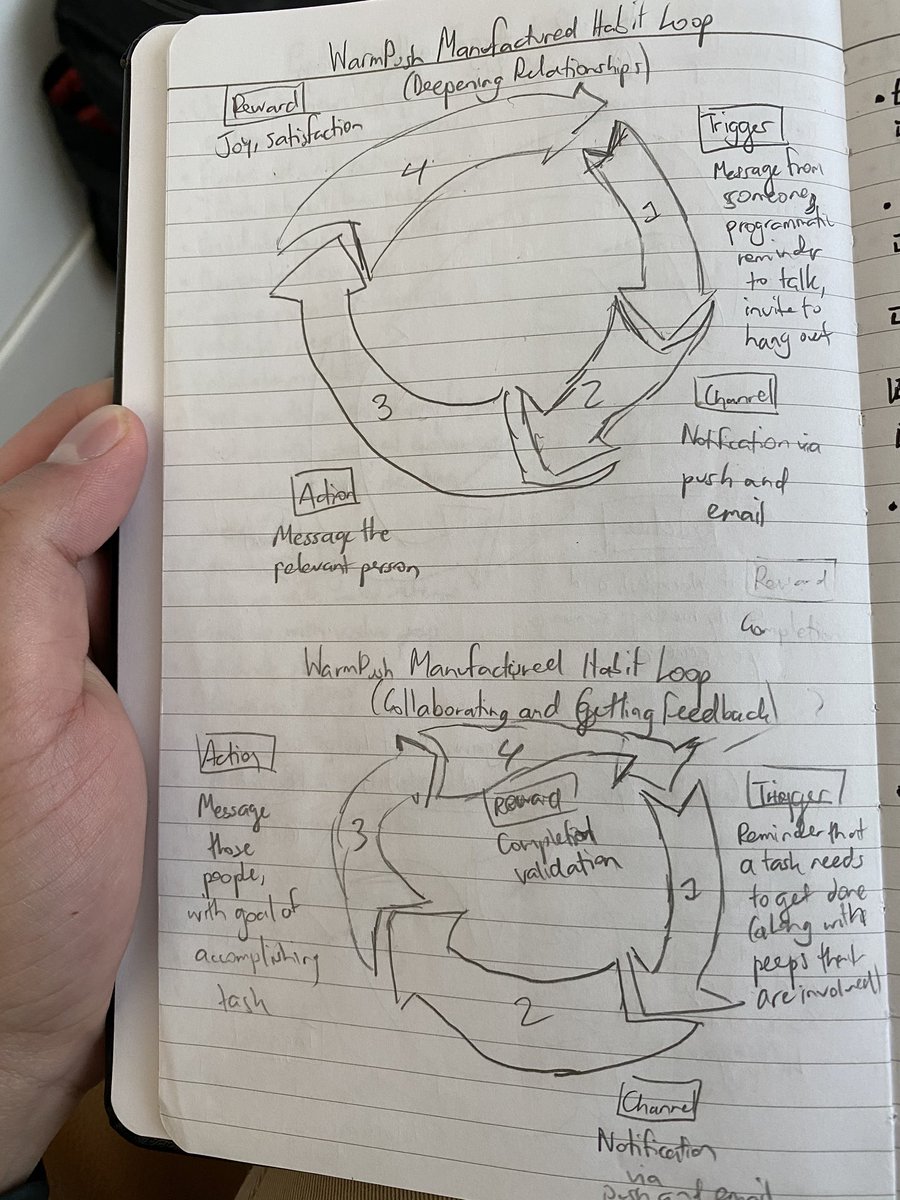 WarmPush Manufactured Habit Loop
(Deepening Relationships)
Reward
Joy, satisfaction
4
Trigger
Message from
someone,
programmatic
reminder
to talk,
invite to
hang out
1
Channel
Notification via
push and
email
2
3
Action
Message the
relevant person
Reward
Completion
WarmPush Manufactured Habit Loop
(Collaborating and Getting Feedback)
Action
Message
those
people,
with goal of
accomplishing
task
4
Reward
Completion
validation
3
1
Trigger
Reminder that
a task needs
to get done
(along with
peeps that
are involved)
2
Channel
Notification
via
push and email